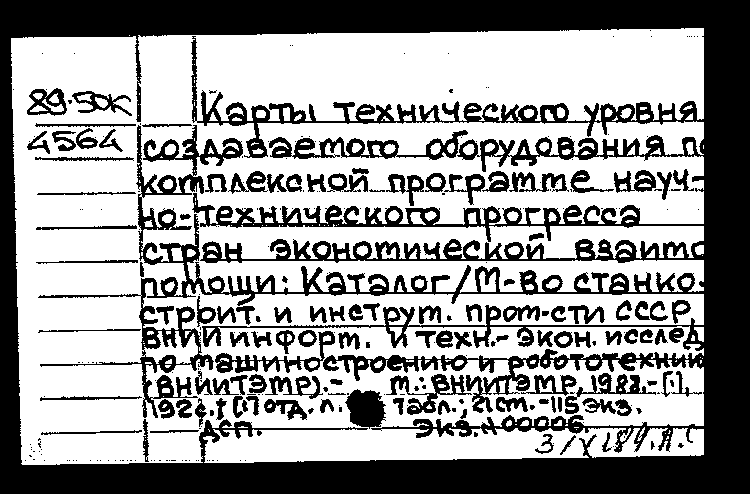 89-50к
4564
Карты технического уровня
создаваемого оборудования по
комплексной программе науч-
но-технического прогресса
стран экономической взаимо
помощи: Каталог/М-во станко-
строит. и инструт. пром-сти СССР,
ВНИИ информ. и техн.- экон. исслед
по машиностроению и робототехник
(ВНИИТЭМР).- М.: ВНИИТЭМР, 1988.- [1],
192с. + [1] отд. л. табл.; 21 см. - 115 экз.
ДСП. Экз. N 00006.